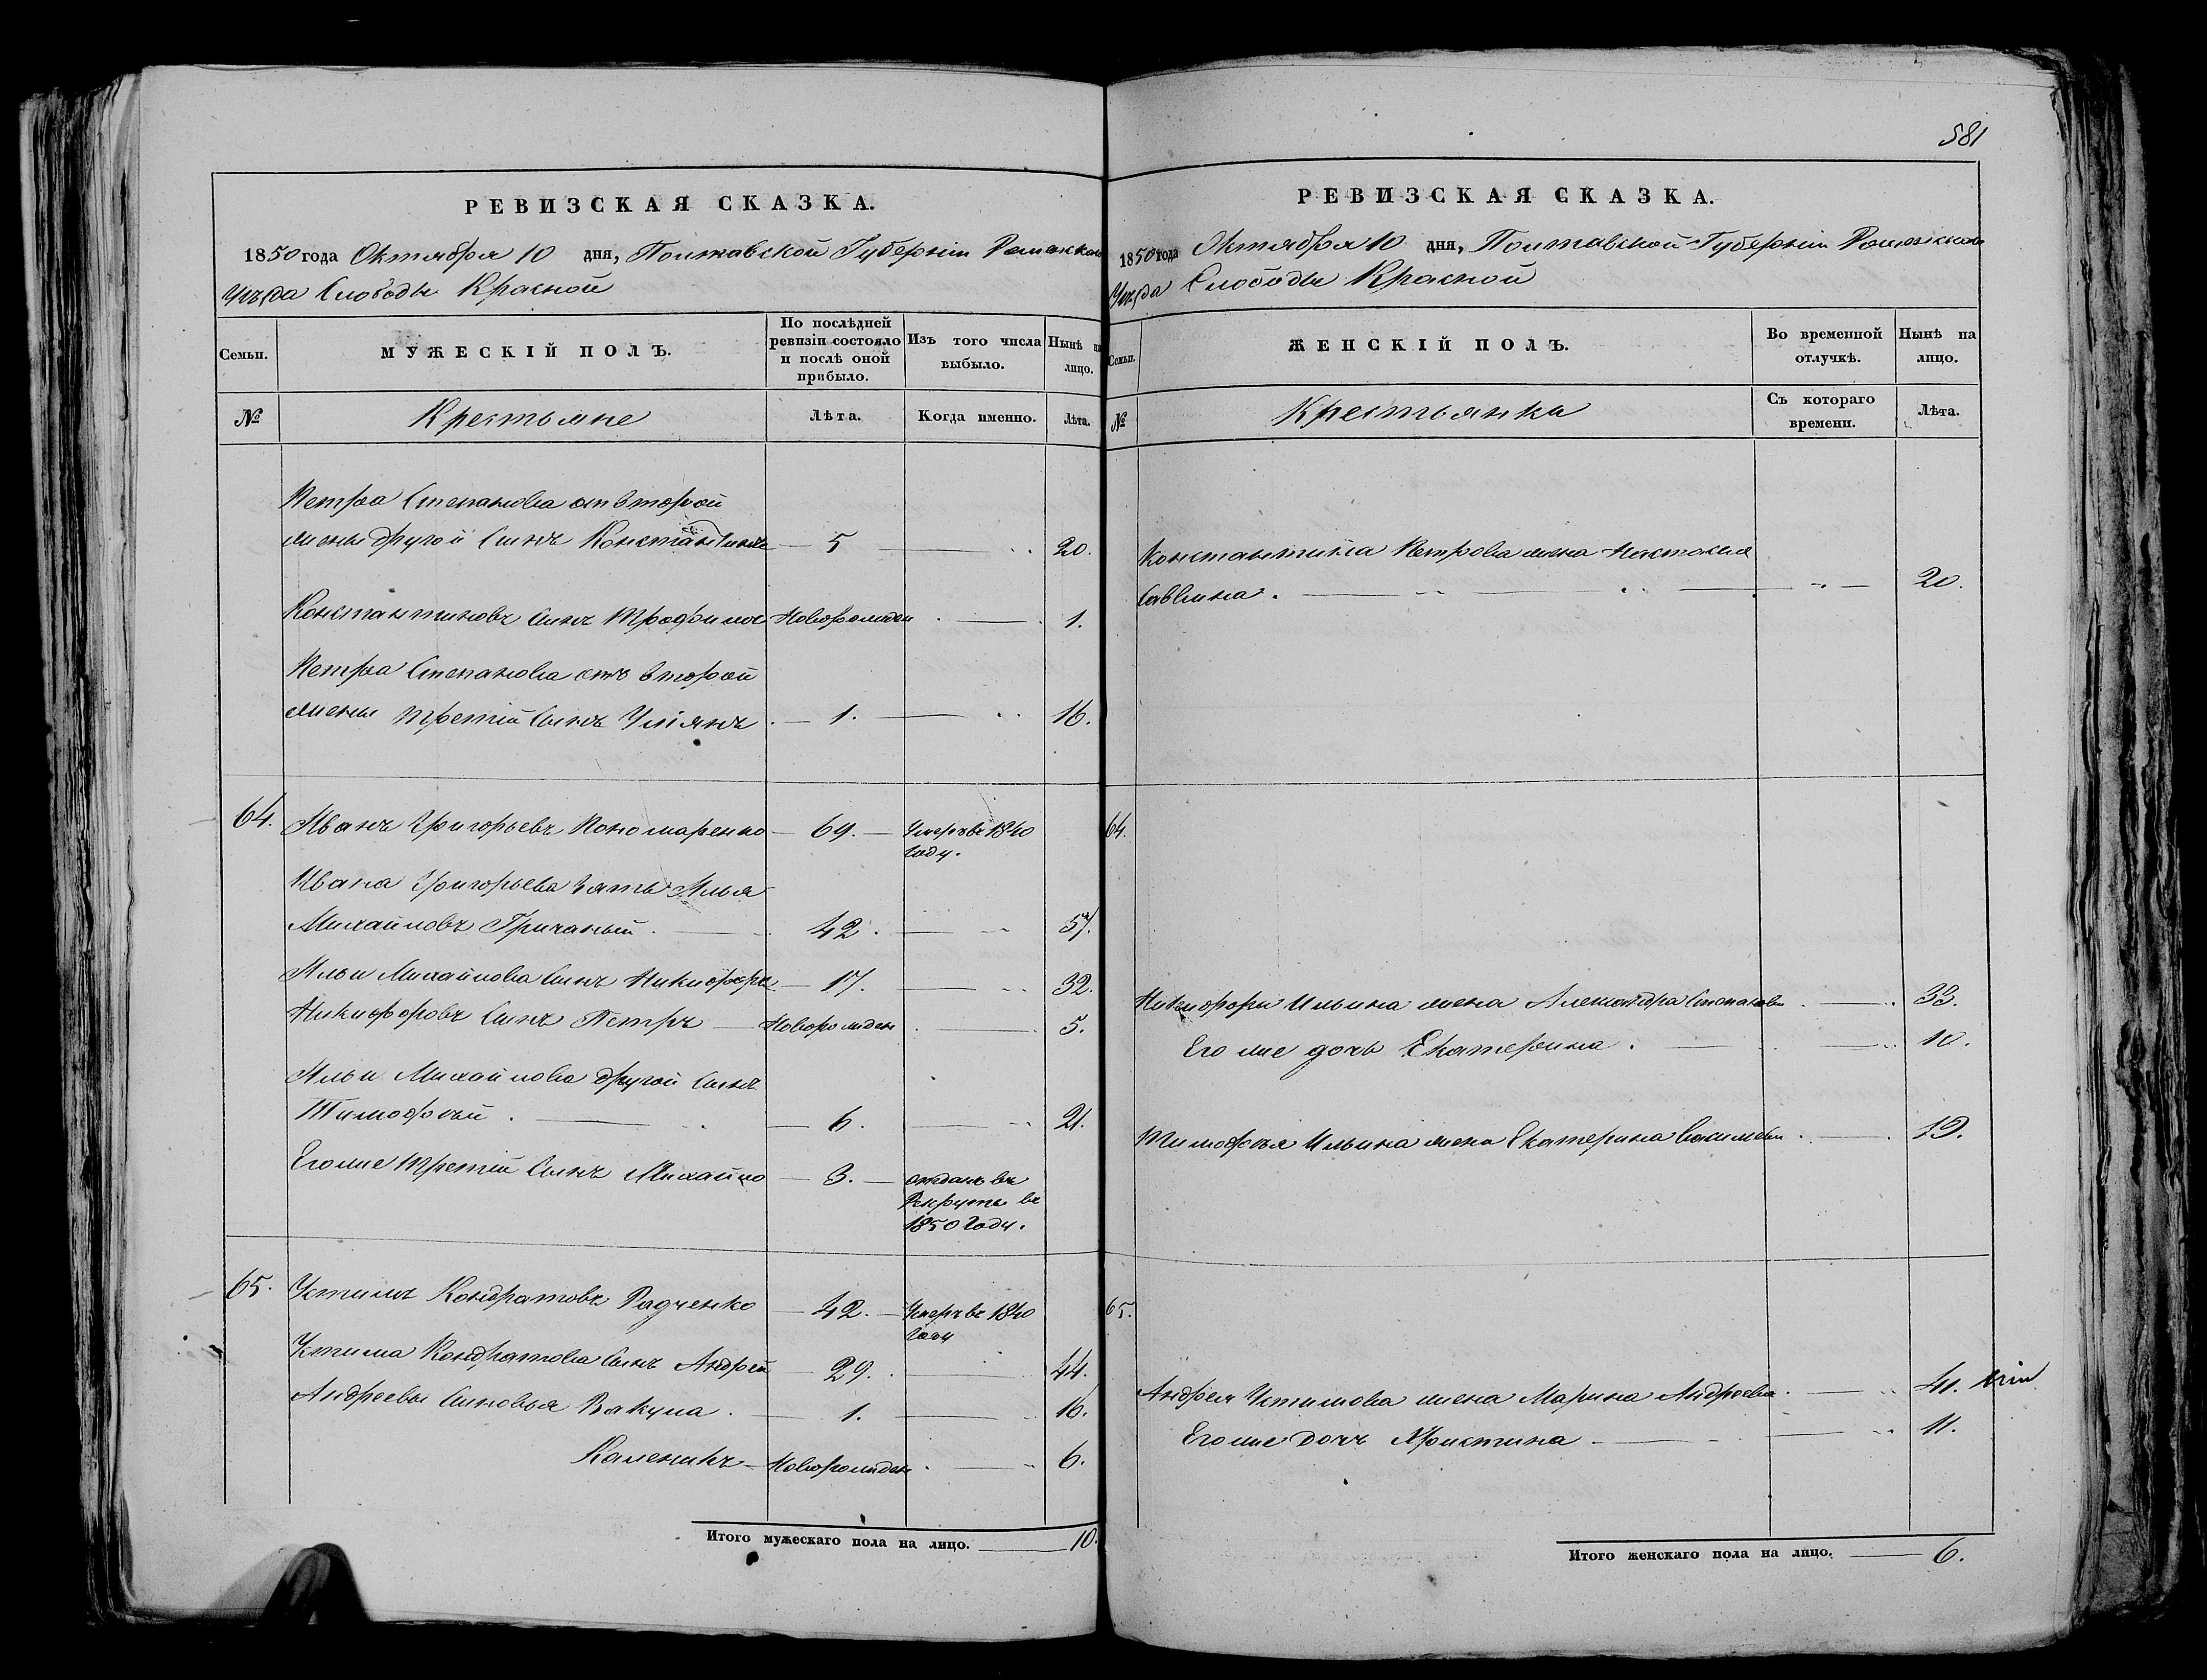 РЕВИЗСКАЯ СКАЗКА.
1850 года Октября 10 дня, Полтавской Губерніи Роменскаго
Уѣзда Слободы Красной
Семьи. МУЖЕСКІЙ ПОЛЪ. По послѣдней ревизіи состояло и послѣ оной прибыло. Изъ того числа выбыло. Нынѣ на лицо.
№ Крестьяне Лѣта. Когда именно. Лѣта.
Петра Степанова отъ второй
жены другой Сынъ Константинъ — 5 — 20.
Константиновъ Сынъ Трофимъ Новорожден — 1.
Петра Степанова отъ второй
жены третій Сынъ Уліянъ — 1. — 16.
64. Иванъ Григорьевъ Пономаренко — 69. — Умеръ въ 1840
Году.
Ивана Григорьева Зять Илья
Михайловъ Гричаный. — 42. — 57.
Ильи Михайлова Сынъ Никифоръ — 17. — 32.
Никифоровъ Сынъ Петръ — Новорожден — 5.
Ильи Михайлова другой Сынъ
Тимофѣй. — 6. — 21.
Его же третій Сынъ Михайло — 3. — отданъ въ
Рекруты въ
1850 Году.
65. Устимъ Кондратовъ Радченко — 42. — Умеръ въ 1840
Году
Устима Кондратова Сынъ Андрей — 29. — 44.
Андреевы Сыновья Вакула. — 1. — 16.
Каленикъ — Новорожден — 6.
Итого мужескаго пола на лицо. — 10.
581
РЕВИЗСКАЯ СКАЗКА.
1850 года Октября 10 дня, Полтавской Губерніи Роменскаго
Уѣзда Слободы Красной
Семьи. ЖЕНСКІЙ ПОЛЪ. Во временной отлучкѣ. Нынѣ на лицо.
№ Крестьянка Съ котораго времени. Лѣта.
Константина Петрова жена Настасія
Саввина. — 20.
64.
Никифора Ильина жена Александра Степанова — 33.
Его же дочь Екатерина. — 10.
Тимофѣя Ильина жена Екатерина Васильева — 19.
65.
Андрея Устимова жена Марина Андреева — 41.
Его же дочь Христина — 11.
Итого женскаго пола на лицо. — 6.